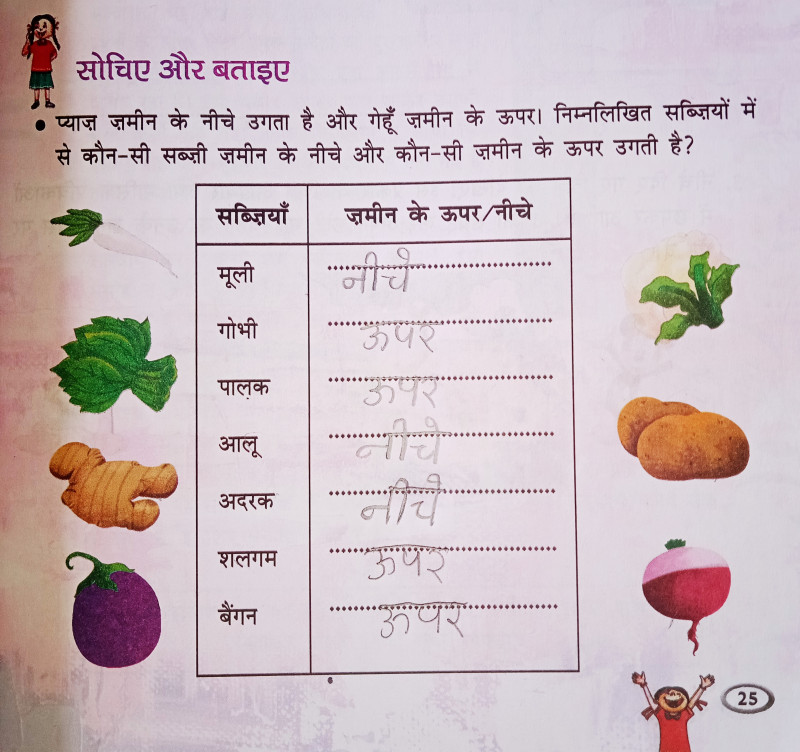 सोचिए और बताइए
• प्याज़ ज़मीन के नीचे उगता है और गेहूँ ज़मीन के ऊपर। निम्नलिखित सब्ज़ियों में
से कौन-सी सब्ज़ी ज़मीन के नीचे और कौन-सी ज़मीन के ऊपर उगती है?
सब्ज़ियाँ ज़मीन के ऊपर/नीचे
मूली नीचे
गोभी ऊपर
पालक ऊपर
आलू नीचे
अदरक नीचे
शलगम ऊपर
बैंगन ऊपर
25